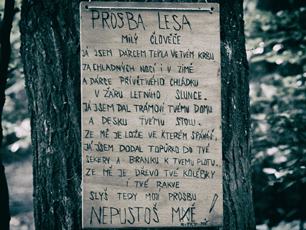 PROSBA LESA
MILÝ ČLOVĚČE
JÁ JSEM DARCEM TEPLA VE TVÉM KRBU
ZA CHLADNÝCH NOCÍ I V ZIMĚ
A DÁRCE PŘÍVĚTIVÉHO CHLÁDKU
V ŽÁRU LETNÍHO SLUNCE.
JÁ JSEM DAL TRÁMOVÍ TVÉMU DOMU
A DESKU TVÉMU STOLU.
ZE MĚ JE LOŽE VE KTERÉM SPÁVÁŠ,
JÁ JSEM DODAL TOPŮRKO DO TVÉ
SEKERY A BRANKU K TVÉMU PLOTU.
ZE MĚ JE DŘEVO TVÉ KOLÉBKY
I TVÉ RAKVE
SLYŠ TEDY MOJI PROSBU
NEPUSTOŠ MNĚ!